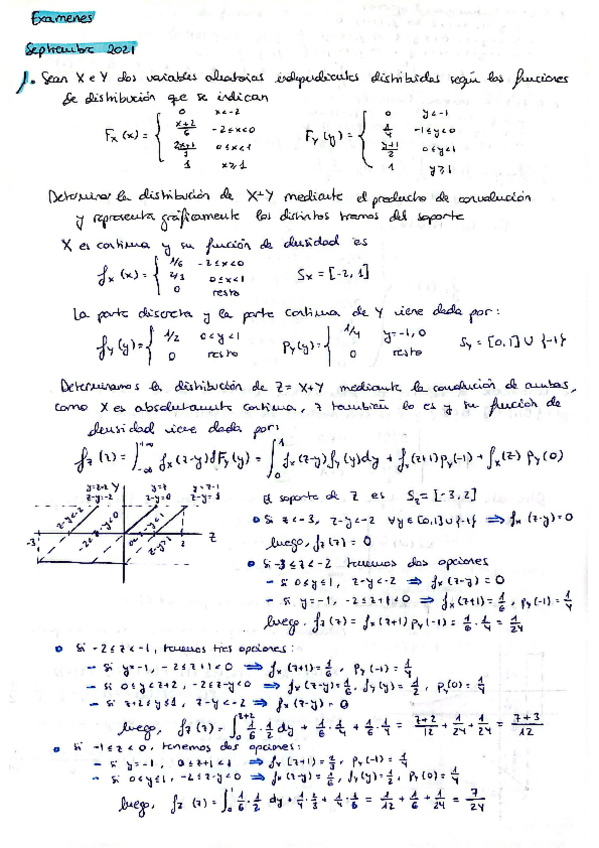 Examenes
Septiembre 2021
1. Sean X e Y dos variables aleatorias independientes distribuidas según las funciones
de distribución que se indican
F_X(x) = { 0 x<-2 F_Y(y) = { 0 y<-1
(x+2)/6 -2≤x<0 1/4 -1≤y<0
(2x+1)/3 0≤x<1 (y+1)/2 0≤y<1
1 x≥1 1 y≥1
Determinar la distribución de X+Y mediante el producto de convolución
y representa gráficamente los distintos tramos del soporte
X es continua y su función de densidad es
f_X(x) = { 1/6 -2≤x<0
2/3 0≤x<1 S_X = [-2,1]
0 resto
La parte discreta y la parte continua de Y viene dada por:
f_Y(y) = { 1/2 0<y<1 P_Y(y) = { 1/4 y=-1,0 S_Y = [0,1] ∪ {-1}
0 resto 0 resto
Determinamos la distribución de Z=X+Y mediante la convolución de ambas,
como X es absolutamente continua, Z también lo es y su función de
densidad viene dada por:
f_Z(z) = ∫_{-∞}^{+∞} f_X(z-y)dF_Y(y) = ∫_0^1 f_X(z-y)f_Y(y)dy + f_X(z+1)P_Y(-1) + f_X(z)P_Y(0)
y=z+2 Y y=z y=z-1
z-y=-2 z-y=0 z-y=1
z-y<-2 -2<z-y<0 0<z-y<1 z-y>1
-3 2 Z
El soporte de Z es S_Z = [-3,2]
Si z<-3, z-y<-2 ∀y∈[0,1]∪{-1} ⟹ f_X(z-y)=0
luego, f_Z(z) = 0
Si -3≤z<-2 tenemos dos opciones
- Si 0≤y≤1, z-y<-2 ⟹ f_X(z-y)=0
- Si y=-1, -2≤z+1<0 ⟹ f_X(z+1)=1/6, P_Y(-1)=1/4
luego. f_Z(z) = f_X(z+1)P_Y(-1) = 1/6·1/4 = 1/24
Si -2≤z<-1, tenemos tres opciones:
- Si y=-1, -2≤z+1<0 ⟹ f_X(z+1)=1/6, P_Y(-1)=1/4
- Si 0≤y<z+2, -2≤z-y<0 ⟹ f_X(z-y)=1/6, f_Y(y)=1/2, P_Y(0)=1/4
- Si z+2≤y≤1, z-y<-2 ⟹ f_X(z-y)=0
luego, f_Z(z) = ∫_0^{z+2} 1/6·1/2 dy + 1/6·1/4 + 1/6·1/4 = (z+2)/12 + 1/24 + 1/24 = (z+3)/12
Si -1≤z<0, tenemos dos opciones:
- Si y=-1, 0≤z+1<1 ⟹ f_X(z+1)=2/3, P_Y(-1)=1/4
- Si 0≤y≤1, -2≤z-y<0 ⟹ f_X(z-y)=1/6, f_Y(y)=1/2, P_Y(0)=1/4
luego, f_Z(z) = ∫_0^1 1/6·1/2 dy + 1/4·2/3 + 1/4·1/6 = 1/12 + 1/6 + 1/24 = 7/24